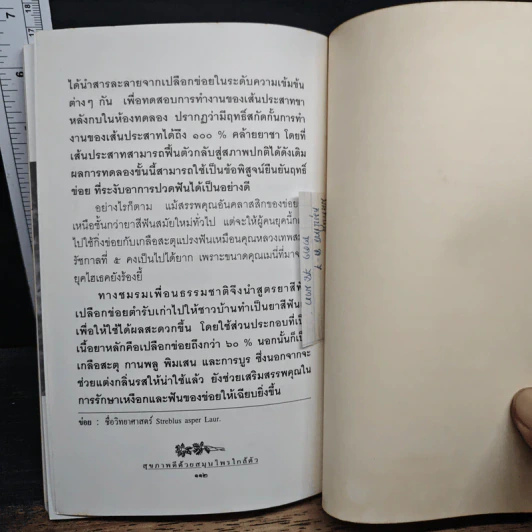 ได้นำสารละลายจากเปลือกข่อยในระดับความเข้มข้น
ต่างๆ กัน เพื่อทดสอบการทำงานของเส้นประสาทขา
หลังกบในห้องทดลอง ปรากฏว่ามีฤทธิ์สกัดกั้นการทำ
งานของเส้นประสาทได้ถึง ๑๐๐ % คล้ายยาชา โดยที่
เส้นประสาทสามารถฟื้นตัวกลับสู่สภาพปกติได้ดังเดิม
ผลการทดลองชั้นนี้สามารถใช้เป็นข้อพิสูจน์ยืนยันฤทธิ์
ข่อย ที่ระงับอาการปวดฟันได้เป็นอย่างดี
อย่างไรก็ตาม แม้สรรพคุณอันคลาสสิกของข่อย
เหนือชั้นกว่ายาสีฟันสมัยใหม่ทั่วไป แต่จะให้ผู้คนยุคนี้
ไปใช้กิ่งข่อยกับเกลือสะตุแปรงฟันเหมือนคุณหลวง
รัชกาลที่ ๕ คงเป็นไปได้ยาก เพราะขนาดคุณเมนี่ที่มา
ยุคไฮเธคยังร้องยี้
ทางชมรมเพื่อนธรรมชาติจึงนำสูตรยาสี
เปลือกข่อยตำรับเก่าไปให้ชาวบ้านทำเป็นยาสีฟัน
เพื่อให้ใช้ได้ผลสะดวกขึ้น โดยใช้ส่วนประกอบที่
เนื้อยาหลักคือเปลือกข่อยถึงกว่า ๖๐ % นอกนั้นก็
เกลือสะตุ กานพลู พิมเสน และการบูร ซึ่งนอกจากจะ
ช่วยแต่งกลิ่นรสให้น่าใช้แล้ว ยังช่วยเสริมสรรพคุณใน
การรักษาเหงือกและฟันของข่อยให้เฉียบยิ่งขึ้น
ข่อย : ชื่อวิทยาศาสตร์ Streblus asper Laur.
สุขภาพดีด้วยสมุนไพรใกล้ตัว
๑๑๒
7
6
18
17